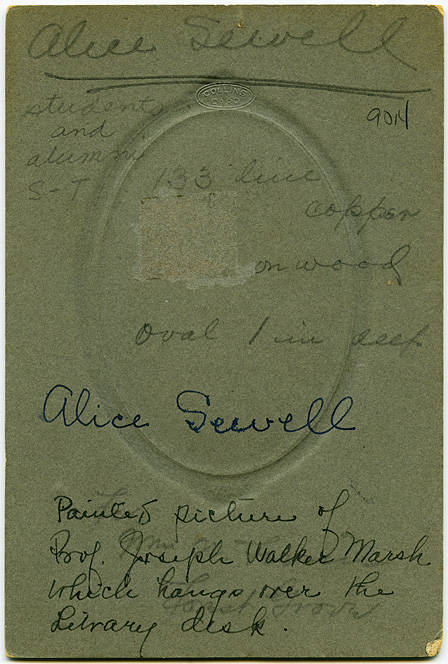 Alice Sewell
COLLINS
CARD
9014
students
and
alumni
S-T
133 line
copper
on wood
oval 1 in deep
Alice Sewell
Painted picture of
Prof. Joseph Walker Marsh
which hangs over the
Library desk.
Forest Grove